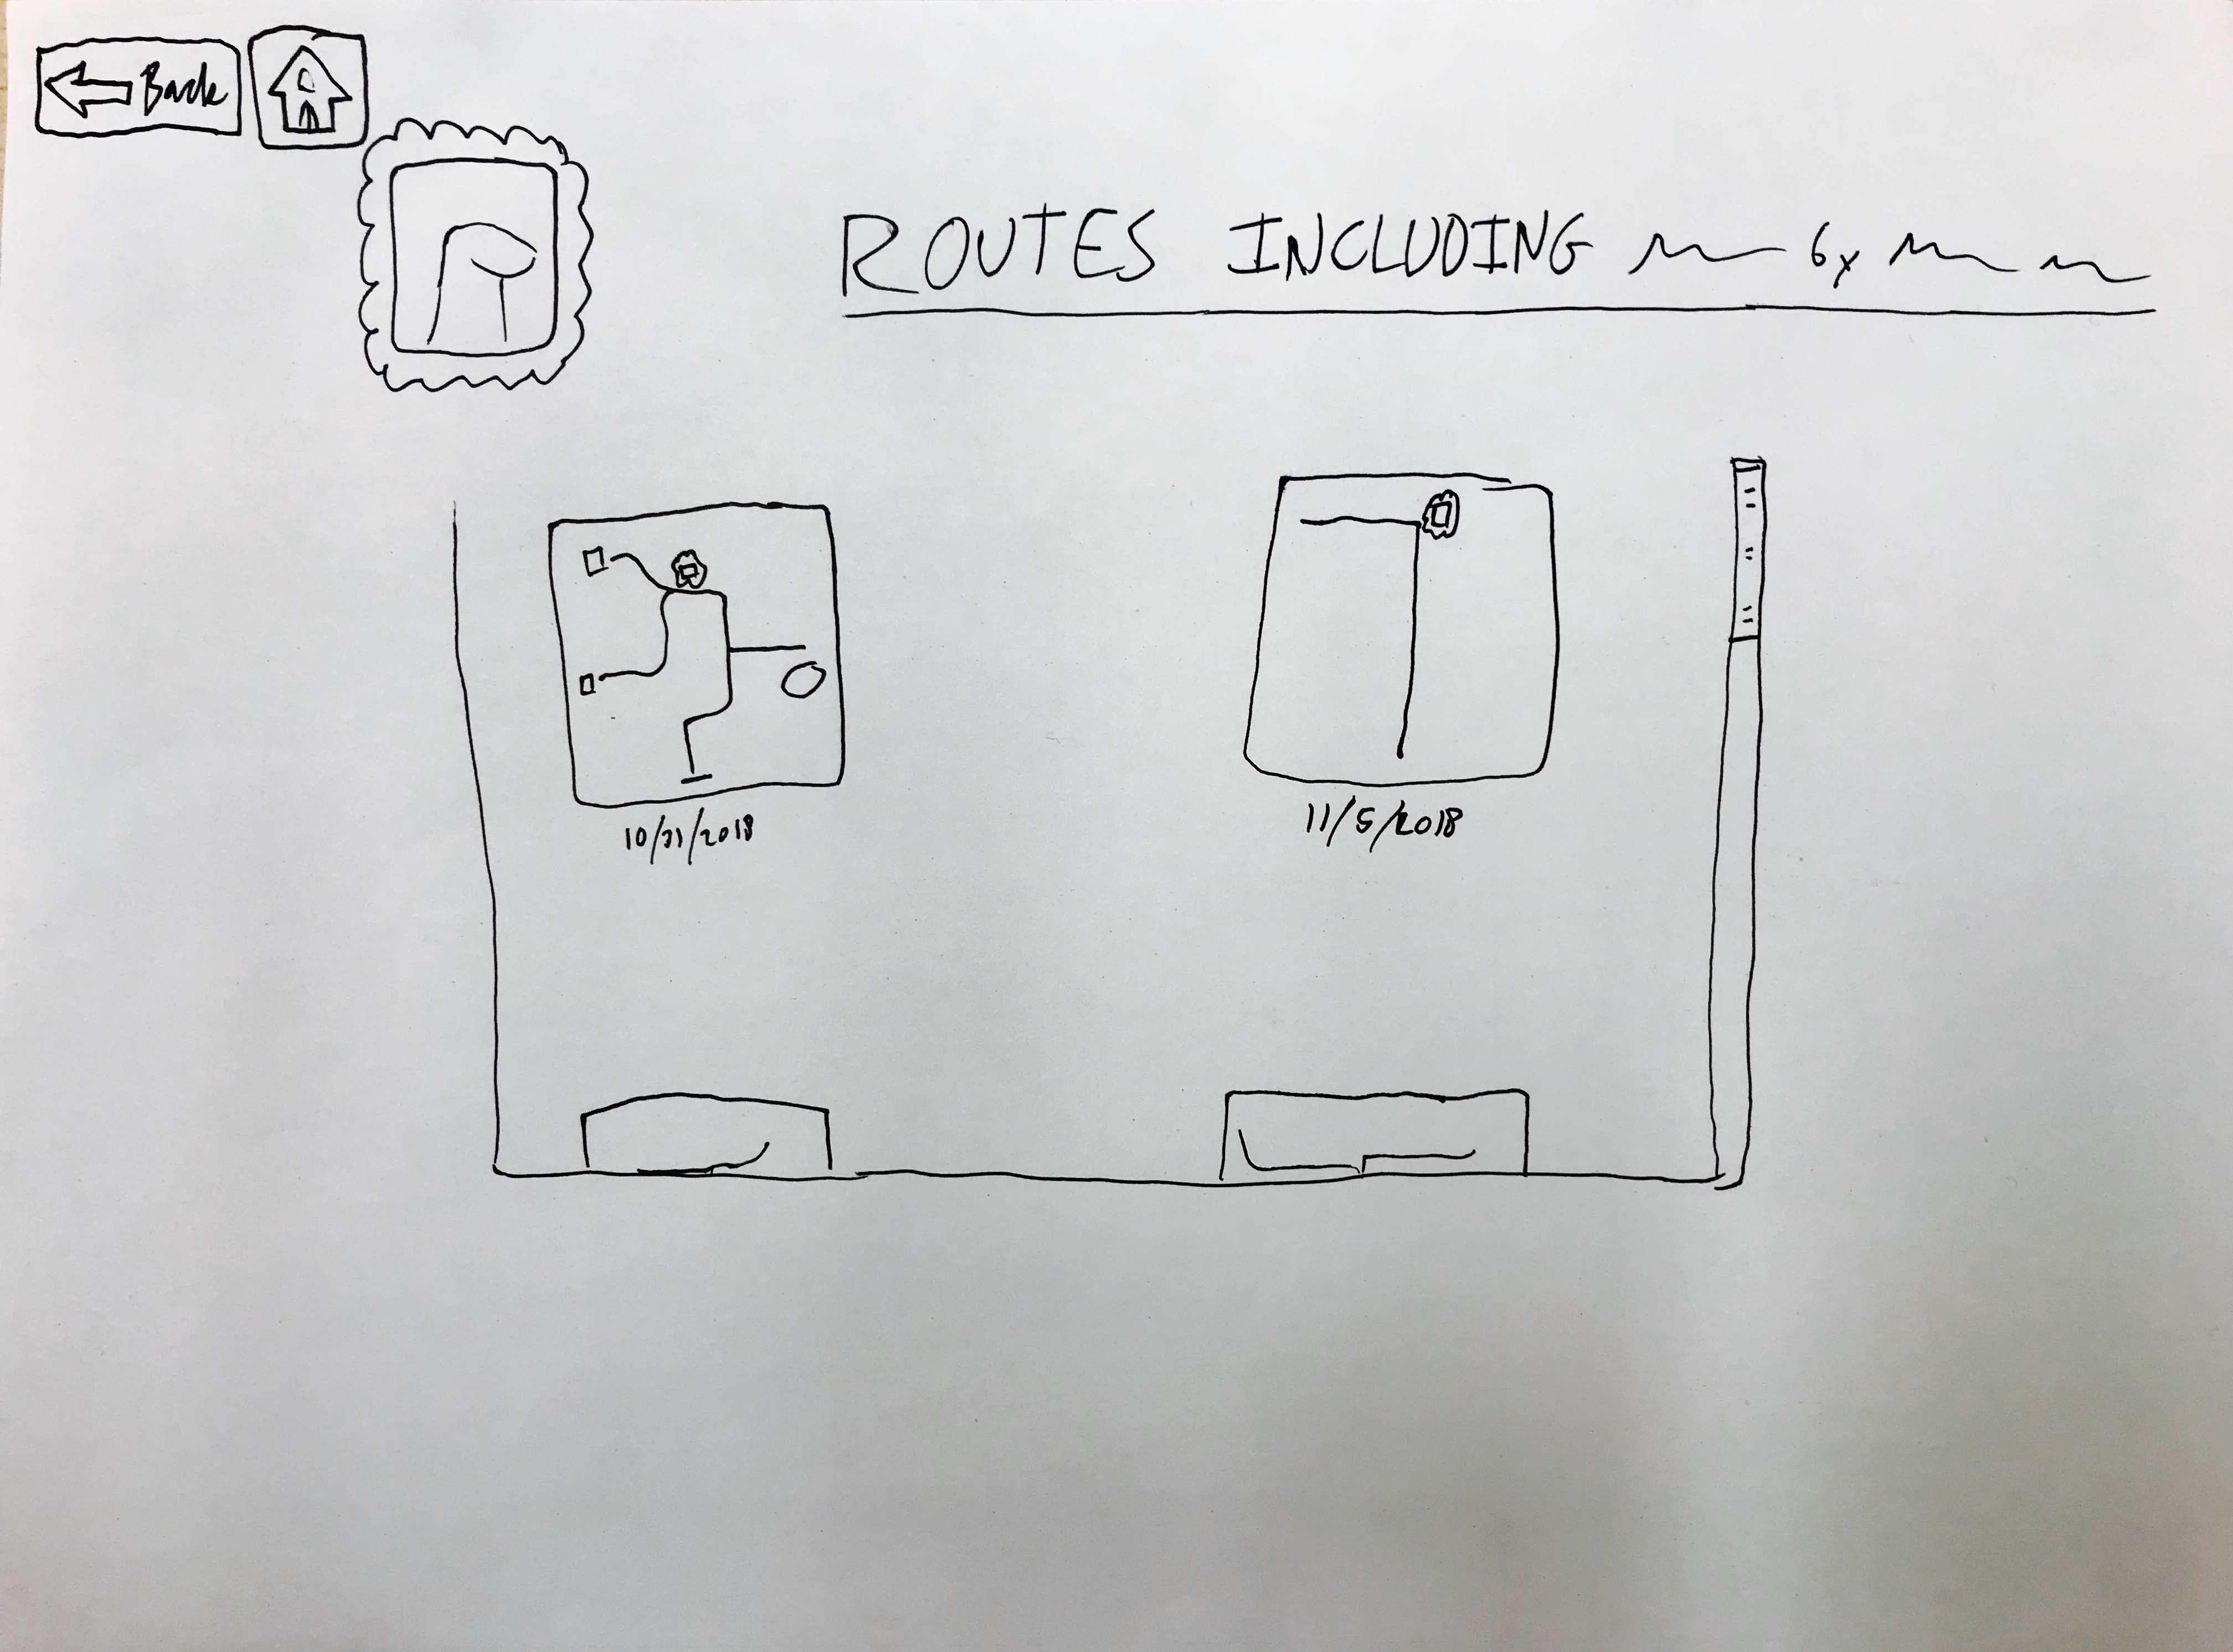 Back
ROUTES INCLUDING
10/21/2018
11/5/2018